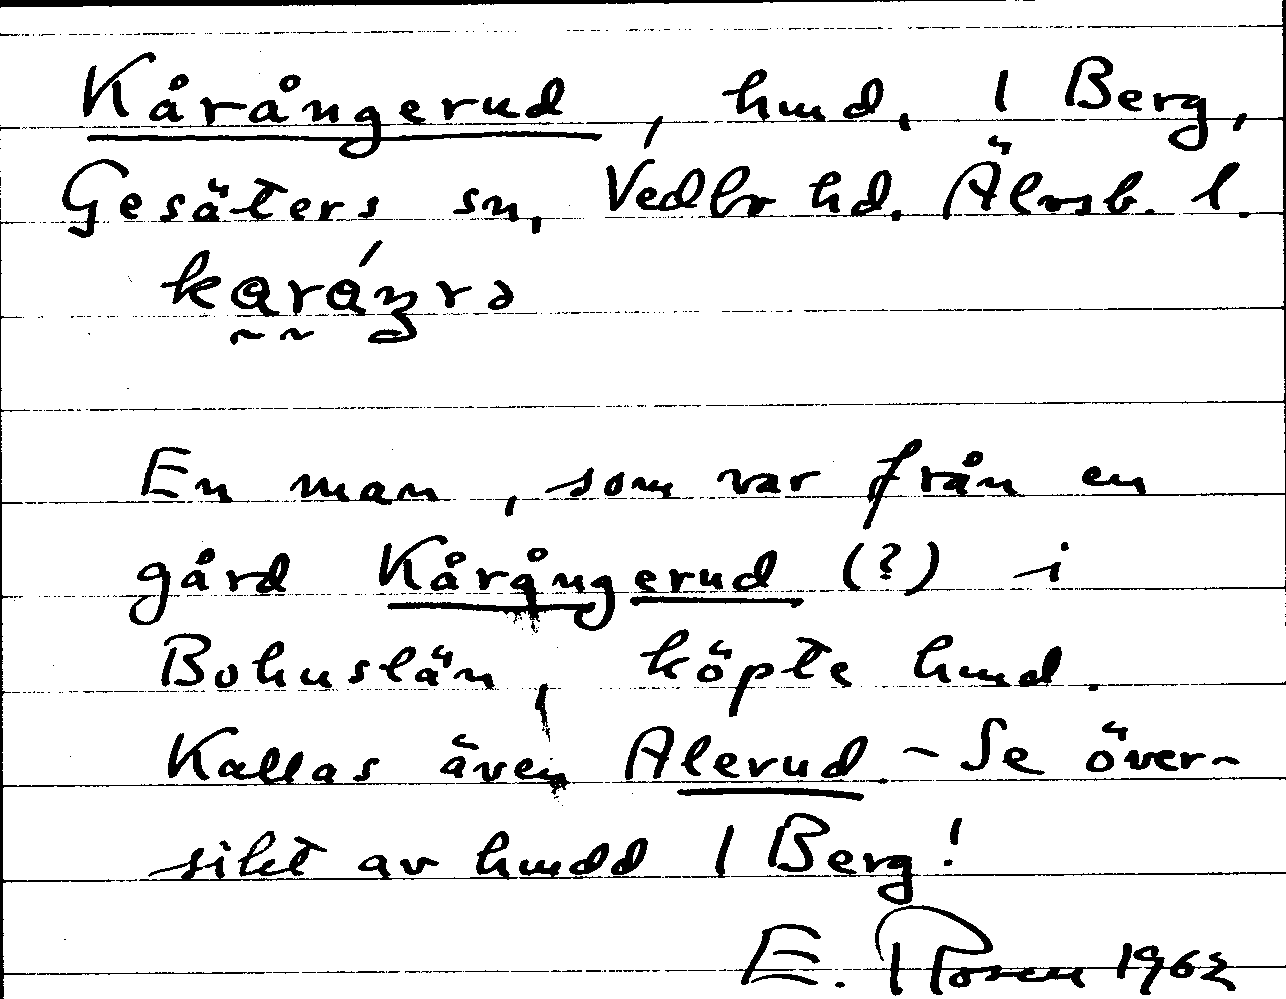 Kårångerud, hmd, 1 Berg,
Gesäters sn, Vedbo hd. Älvsb. l.
En man, som var från en
gård Kårångerud (?) i
Bohuslän, köpte hmd.
Kallas även Alerud. - Se över-
sikt av hmdd 1 Berg!
E. Rosen 1962